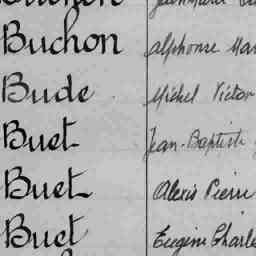 Buchon Alphonse Mar
Bude Michel Victor
Buet Jean-Baptiste
Buet Alexis Pierre
Buet Eugène Charle